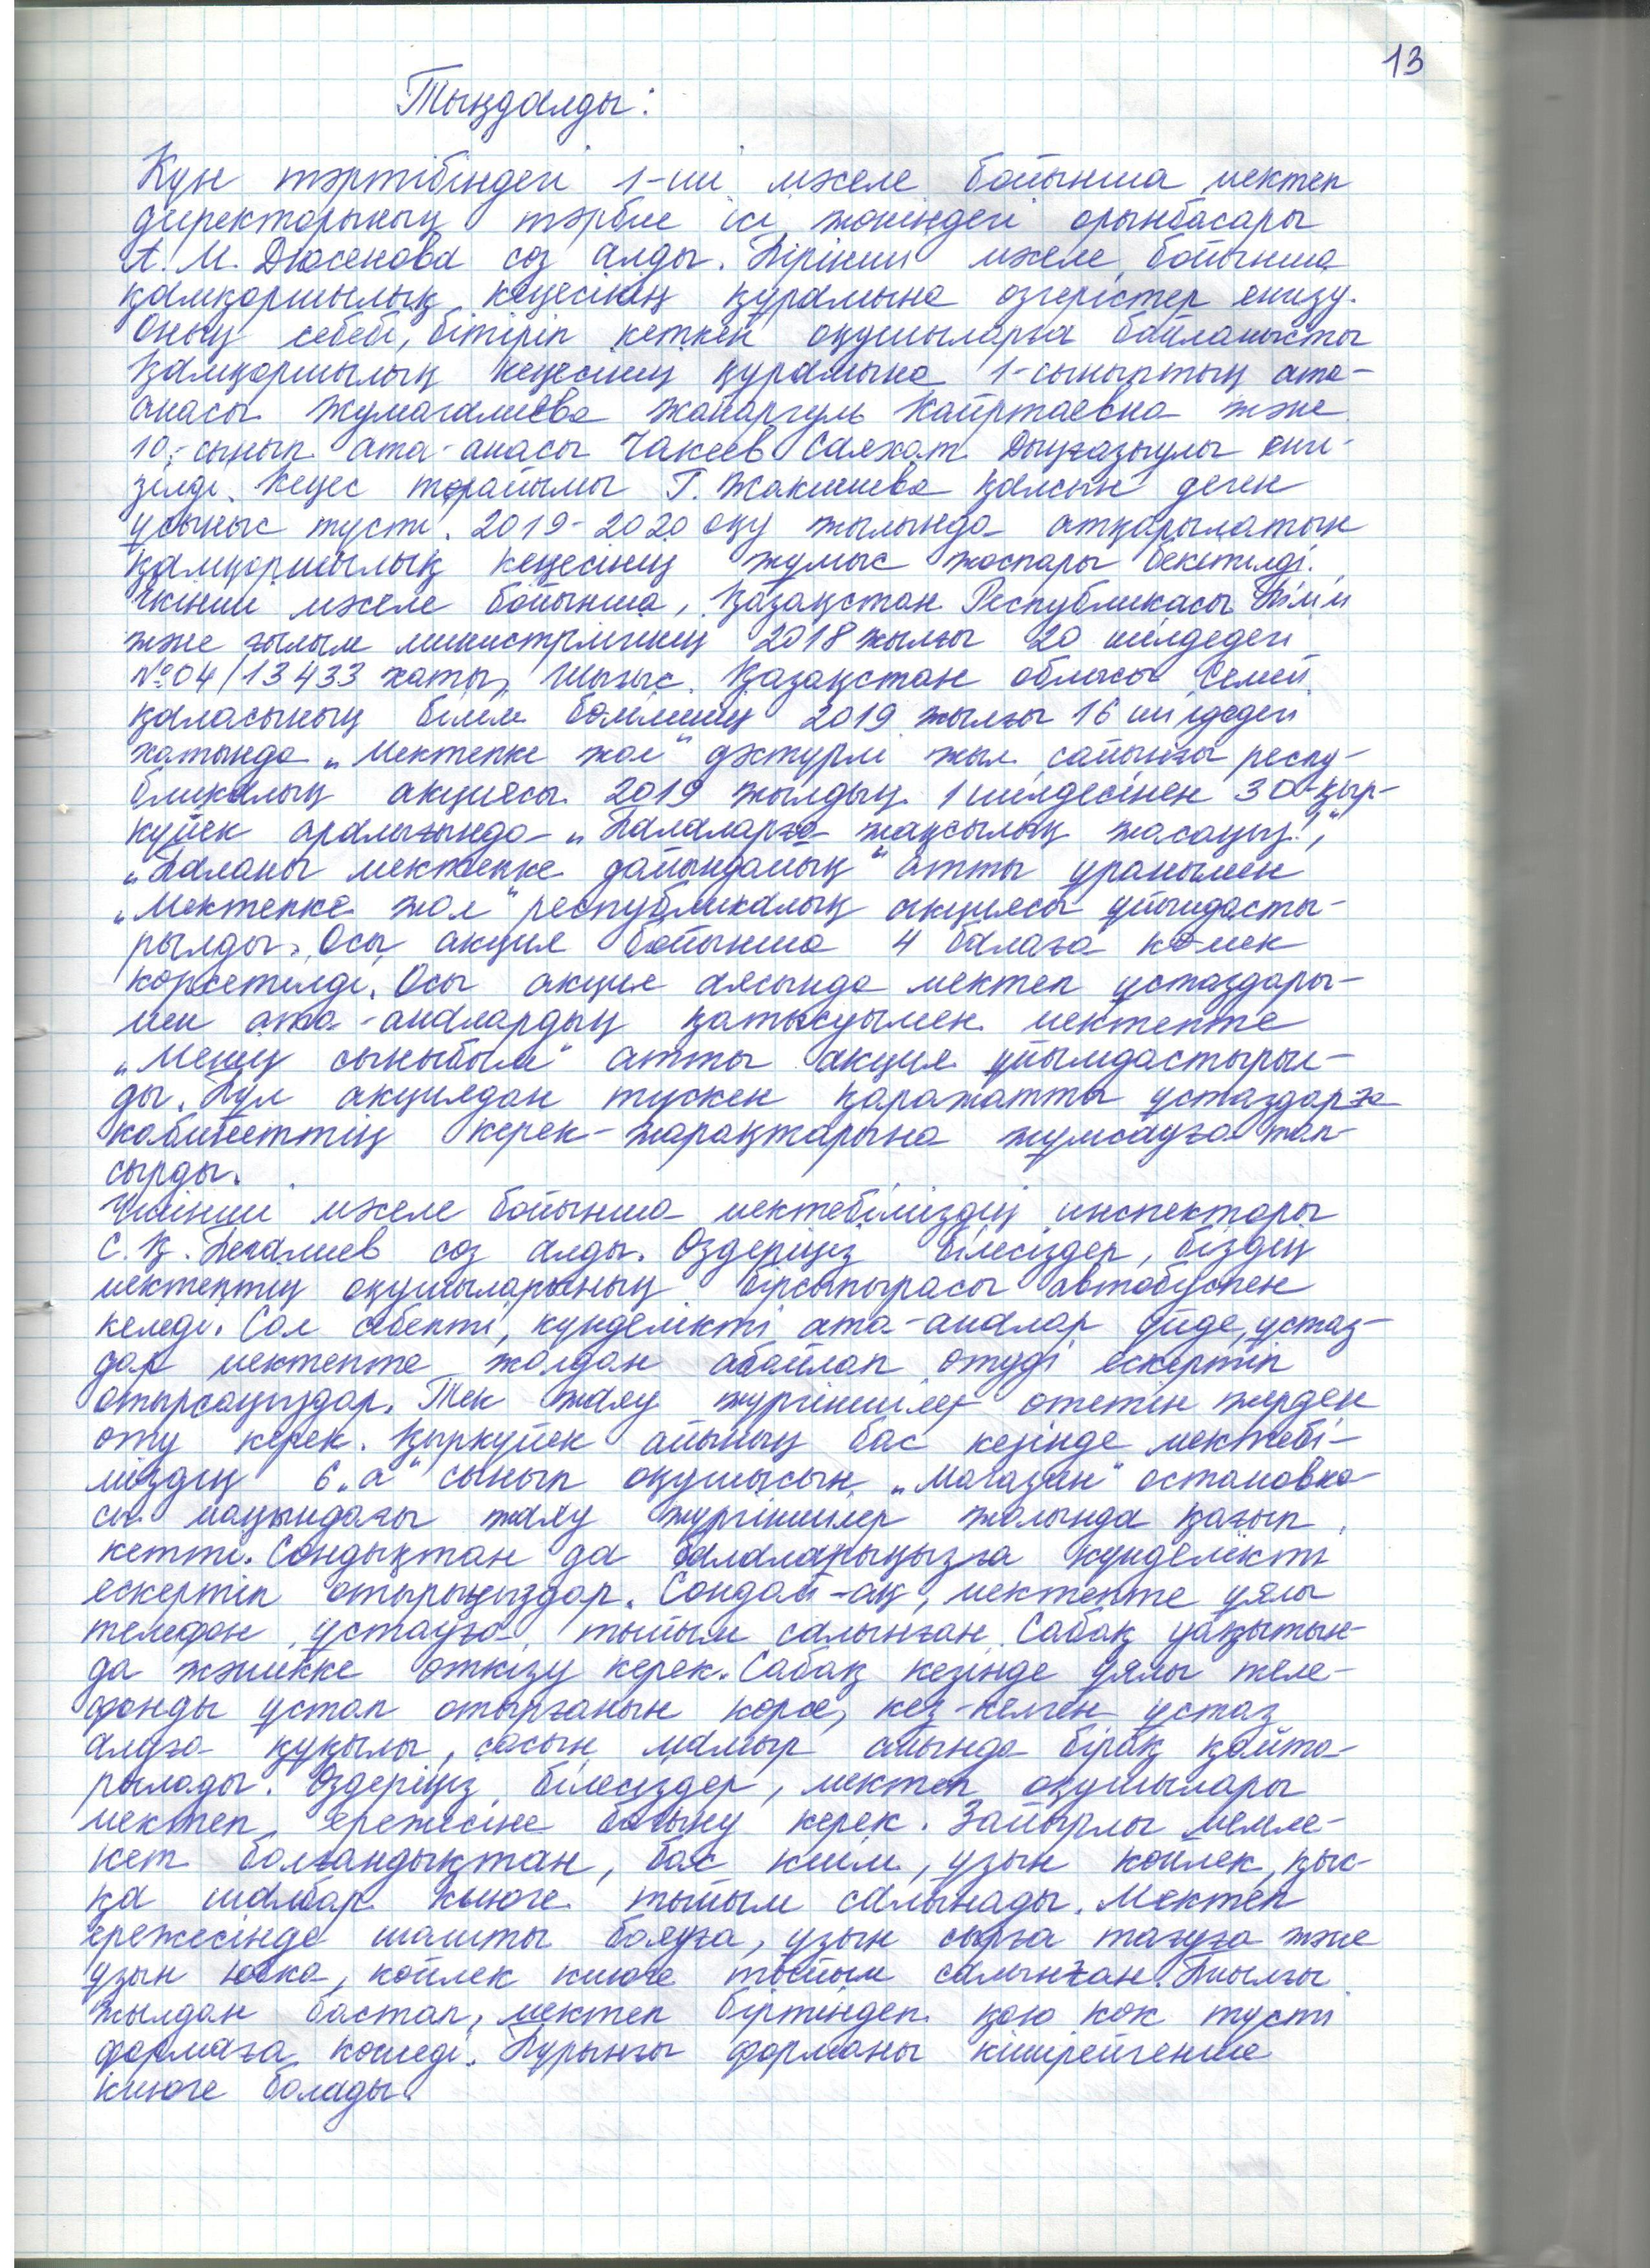 13
Тыңдалды:
Күн тәртібіндегі 1-ші мәселе бойынша мектеп
директорының тәрбие ісі жөніндегі орынбасары
А. М. Дюсенова сөз алды. Бірінші мәселе бойынша
қамқоршылық кеңесінің құрамына өзгерістер енгізу.
Оның себебі, бітіріп кеткен оқушыларға байланысты
Қамқоршылық кеңесінің құрамына 1-сыныптың ата-
анасы Жумагалиева Жанаргуль Кайртаевна және
10-сынып ата-анасы Чакеев Саяхат Дынғазыулы енгі-
зілді. Кеңес төрайымы Г. Жакишева қалсын деген
ұсыныс түсті. 2019-2020 оқу жылында атқарылатын
қамқоршылық кеңесінің жұмыс жоспары бекітілді.
Екінші мәселе бойынша, Қазақстан Республикасы Білім
және ғылым министрлігінің 2018 жылғы 20 шілдедегі
№04/13433 хаты, Шығыс Қазақстан облысы Семей
қаласының білім бөлімінің 2019 жылғы 16 шілдедегі
хатында „Мектепке жол" дәстүрлі жыл сайынғы респу-
бликалық акциясы 2019 жылдың 1 шілдесінен 30-қыр-
күйек аралығында „Балаларға жақсылық жасаңыз!",
„Баланы мектепке дайындайық" атты ұранымен
„Мектепке жол" республикалық акциясы ұйымдасты-
рылды. Осы акция бойынша 4 балаға көмек
көрсетілді. Осы акция аясында мектеп ұстаздары-
мен ата-аналардың қатысуымен мектепте
„Менің сыныбым" атты акция ұйымдастырыл-
ды. Бұл акциядан түскен қаражатты ұстаздарға
кабинеттің керек-жарақтарына жұмсауға тап-
сырды.
Үшінші мәселе бойынша мектебіміздің инспекторы
С. Қ. Бегалиев сөз алды. Өздеріңіз білесіздер, біздің
мектептің оқушыларының бірсыпырасы автобуспен
келеді. Сол себепті, күнделікті ата-аналар үйде, ұстаз-
дар мектепте жолдан абайлап өтуді ескертіп
отырсаңыздар. Тек жаяу жүргіншілер өтетін жерден
өту керек. Қыркүйек айының бас кезінде мектебі-
міздің 6„а" сынып оқушысын „Магазин" остановка-
сы маңындағы жаяу жүргіншілер жолында қағып
кетті. Сондықтан да балаларыңызға күнделікті
ескертіп отырыңыздар. Сондай-ақ, мектепте ұялы
телефон ұстауға тыйым салынған. Сабақ уақытын-
да жәшікке өткізу керек. Сабақ кезінде ұялы теле-
фонды ұстап отырғанын көрсе, кез-келген ұстаз
алуға құқылы, сосын мамыр айында бірақ қайта-
рылады. Өздеріңіз білесіздер, мектеп оқушылары
мектеп ережесіне бағыну керек. Зайырлы мемле-
кет болғандықтан, бас киім, ұзын көйлек, қыс-
қа шалбар киюге тыйым салынады. Мектеп
ережесінде шашты бояуға, ұзын сырға тағуға және
ұзын юбка, көйлек киюге тыйым салынған. Биылғы
жылдан бастап, мектеп біртіндеп қою көк түсті
формаға көшеді. Бұрынғы форманы кішірейгенше
киюге болады.